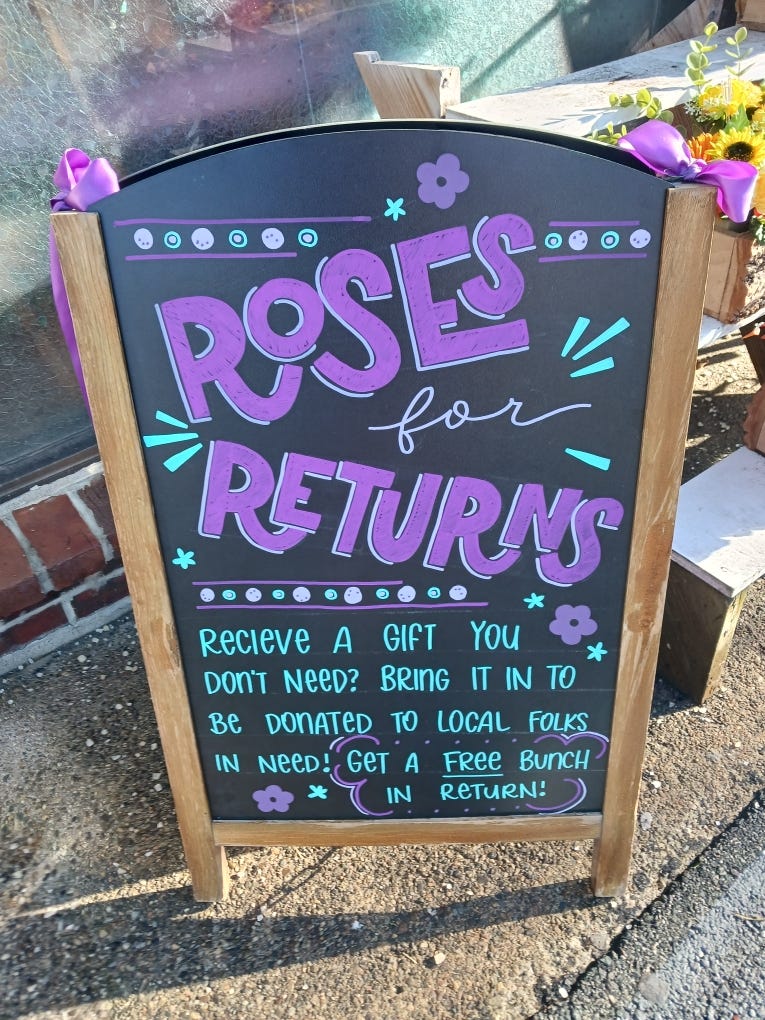 ROSES
for
RETURNS
RECIEVE A GIFT YOU
DON'T NEED? BRING IT IN TO
BE DONATED TO LOCAL FOLKS
IN NEED! GET A FREE BUNCH
IN RETURN!